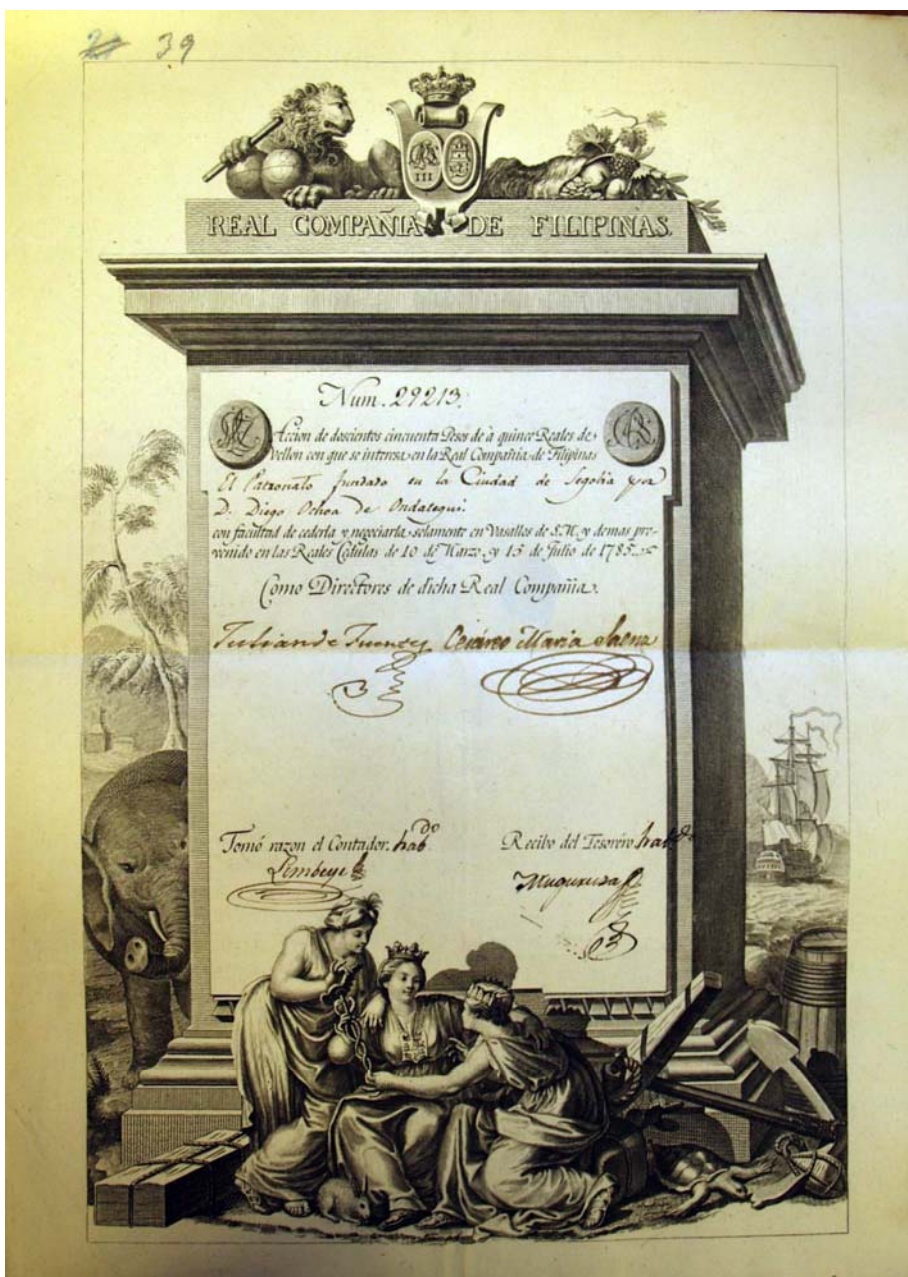 39
III
REAL COMPAÑIA DE FILIPINAS.
Num. 29213.
Accion de doscientos cincuenta Pesos de à quince Reales de
Vellon con que se interesa en la Real Compañia de Filipinas
El Patronato fundado en la Ciudad de Segobia por
D. Diego Ochoa de Ondategui.
con facultad de cederla y negociarla solamente en Vasallos de S.M. y demas pre-
venido en las Reales Cedulas de 10 de Marzo, y 15 de Julio de 1785.
Como Directores de dicha Real Compañia.
Julian de Fuentes Maria Saenz
Tomó razon el Contador. habdo
Recibo del Tesorero habdo
Lembeye
Muguruza